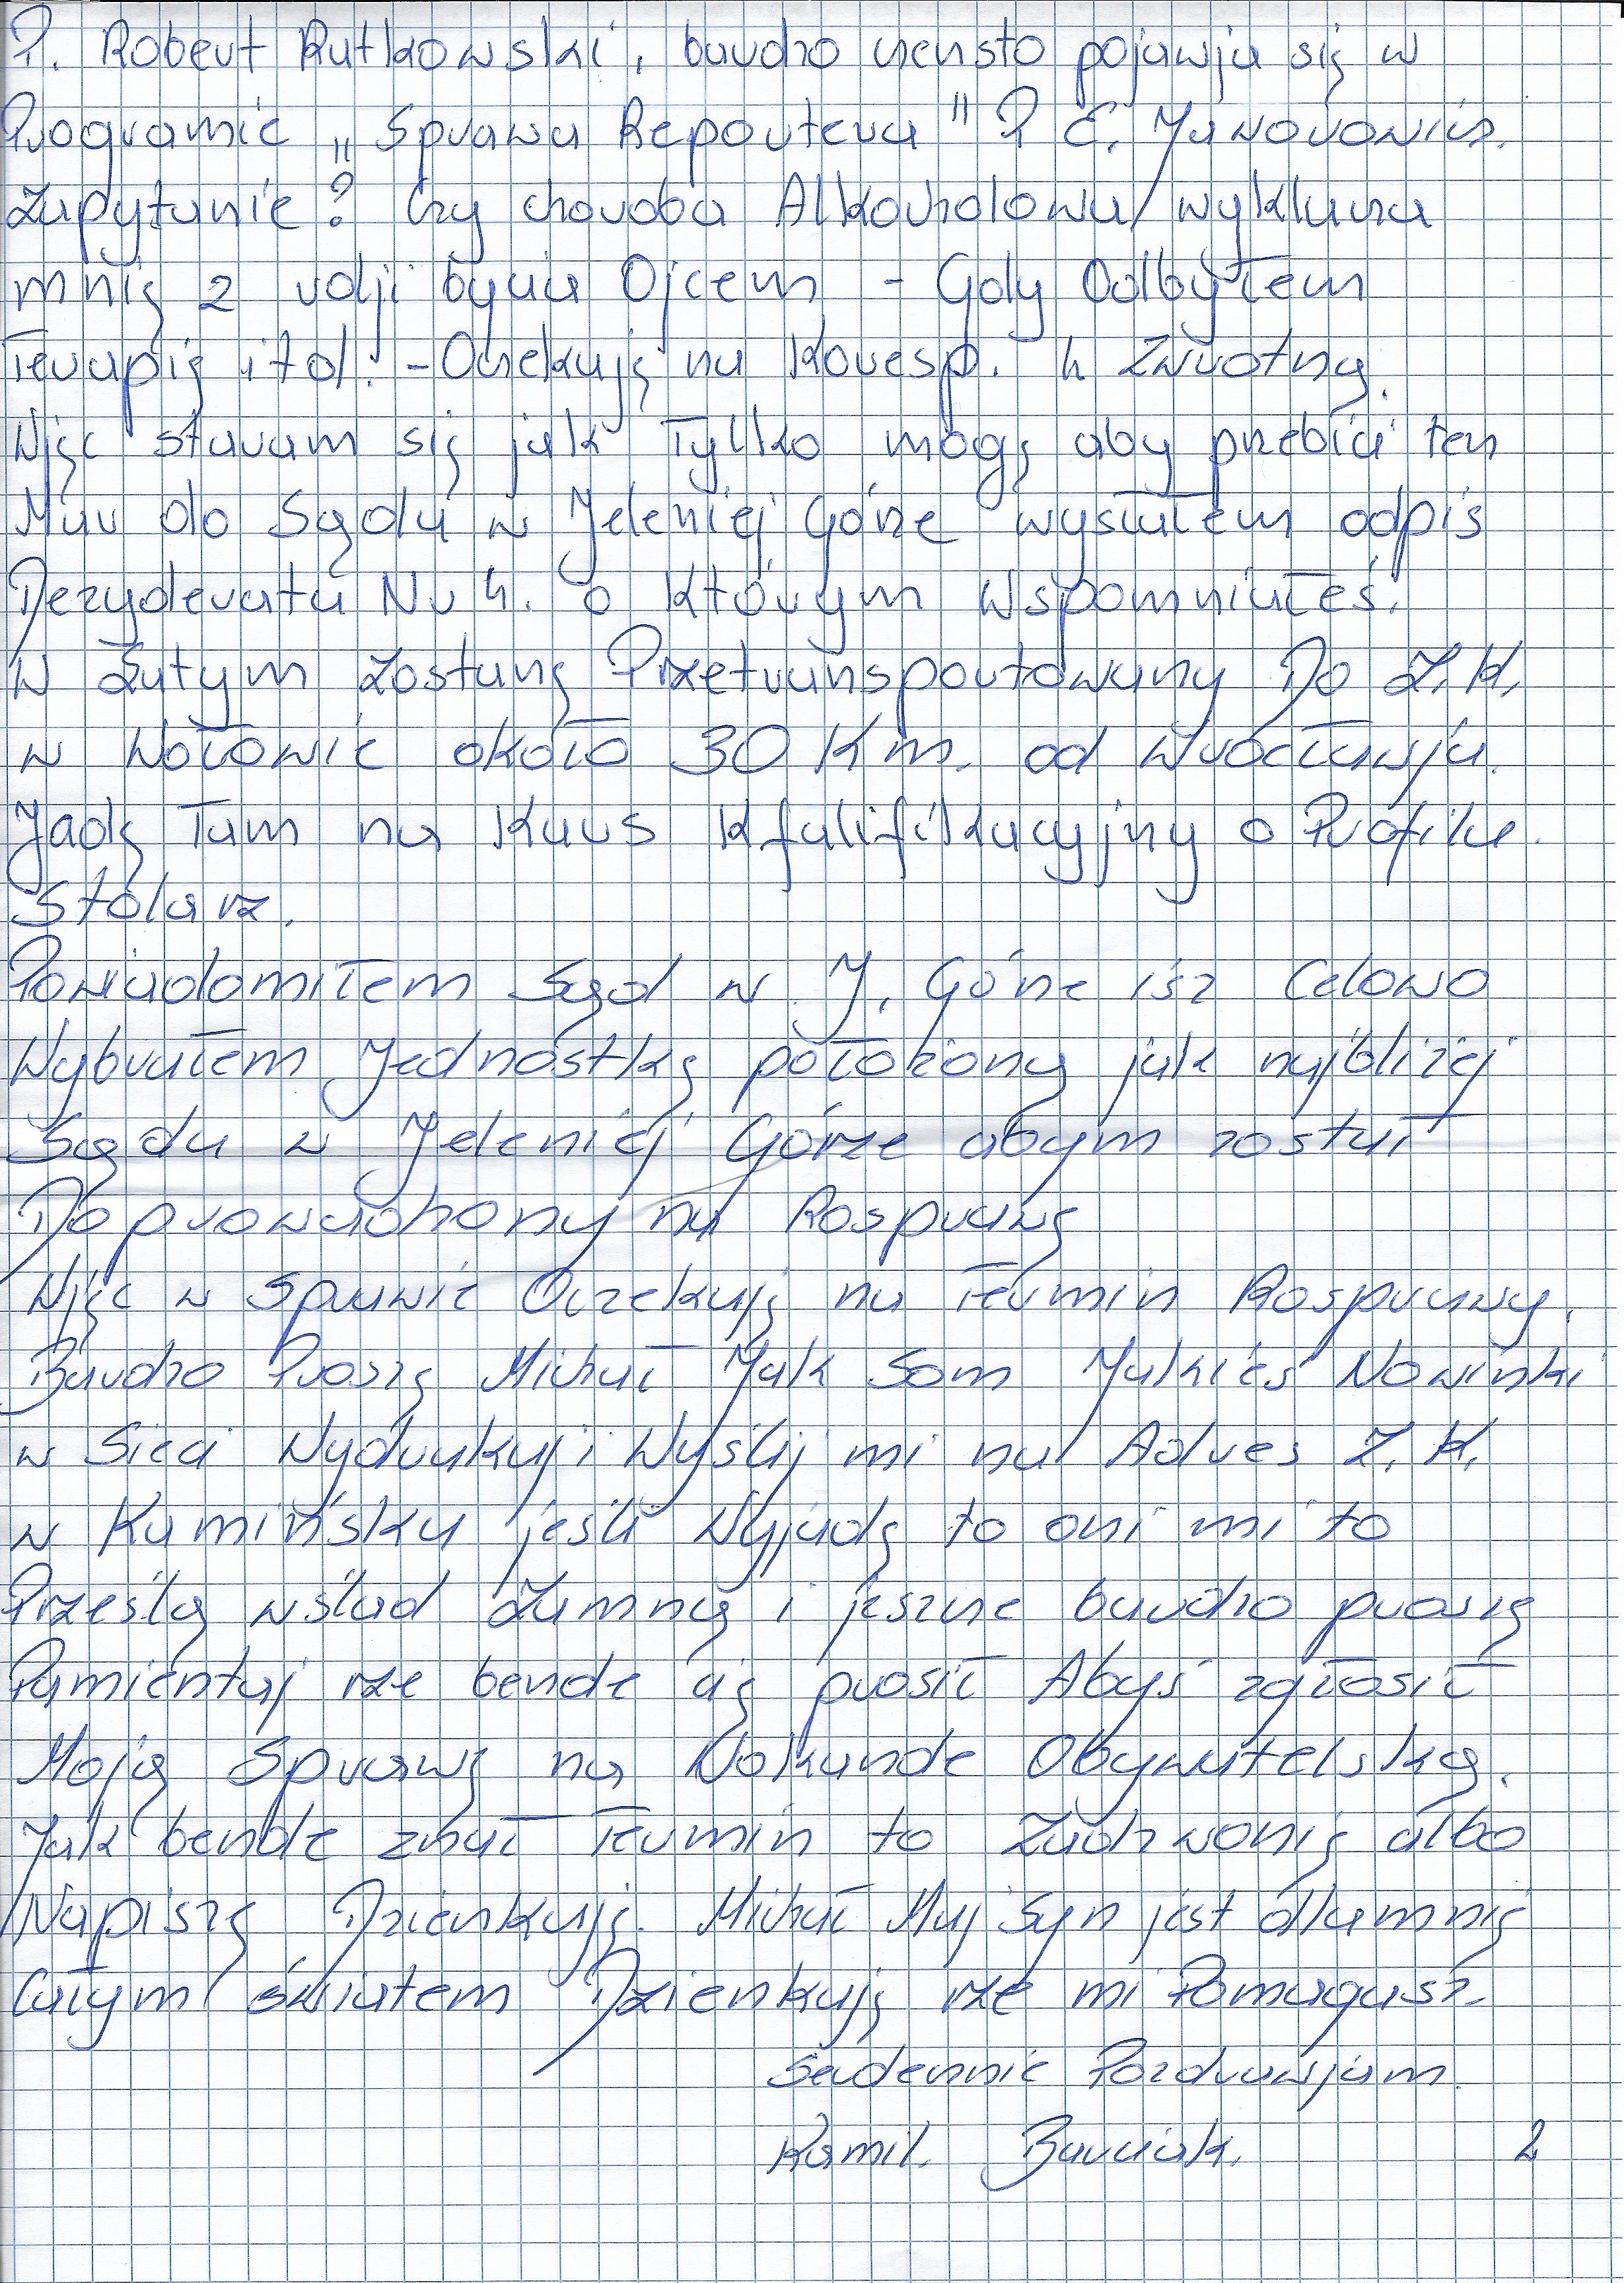 P. Robert Rutkowski, bardzo czensto pojawja się w
Programie „Sprawa Reportera" P E. Jaworowicz.
Zapytanie? Czy choroba Alkocholowa wyklucza
mnię z rolji bycia Ojcem - Gdy Odbyłem
Terapię itd. - Oczekuję na Koresp. Zwrotną.
Wjęc staram się jak Tylko mogę aby przebić ten
Mur do Sądu w Jeleniej Górze wysłałem odpis
Dezyderatu Nr 4. o Którym Wspomniałeś.
w Lutym Zostanę Przetransportowany Do Z.K.
w Wołowie około 30 Km. od Wrocławja.
Jadę Tam na Kurs Kfalifikacyjny o Profilu.
Stolarz.
Powiadomiłem Sąd w J. Górze isz Celowo
Wybrałem Jednostkę położoną jak najbliżej
Sądu w Jeleniej Górze abym został
Doprowadzony na Rosprawę
Wjęc w Sprawie Oczekuję na Termin Rosprawy.
Bardzo Proszę Michał Jak Som Jakieś Nowinki
w Sieci Wydrukuj i Wyślij mi na Adres Z.K.
w Kamińsku jeśli Wyjadę to oni mi to
Prześlą wślad Zamną i jeszcze bardzo proszę
Pamientaj rze bende cię prosił Abyś zgłosił
Moją Sprawę na Wokande Obywatelską.
Jak bende znał Termin to Zadzwonię albo
Napiszę Dzienkuję. Michał Muj Syn jest dlamnię
Całym światem Dzienkuję rze mi Pomagasz.
Serdecznie Pozdrawjam.
Kamil. Barciak. 2